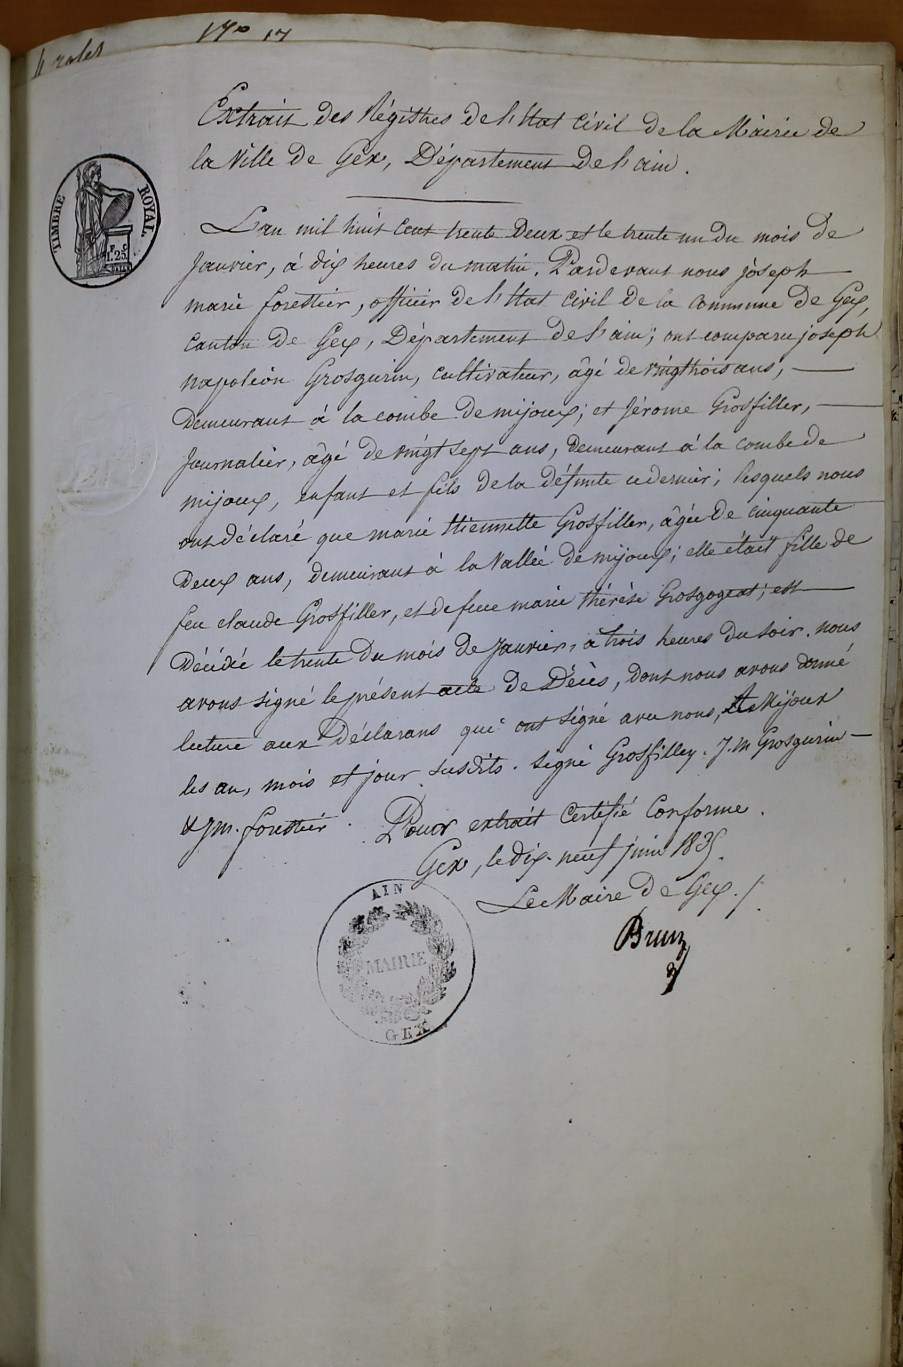 4 roles
N° 17
Extrait des Régistres de l'Etat Civil de la Mairie de
la Ville de Gex, Département de l'ain.
TIMBRE ROYAL.
1.F 25.C
L'an mil huit cent trente Deux et le trente un du mois de
Janvier, à dix heures du matin. Pardevant nous joseph
marie forestier, officier de l'Etat Civil de la Commune de Gex,
Canton de Gex, Département de l'ain; ont comparu joseph
napoléon Grosgurin, cultivateur, âgé de vingt trois ans,
Demeurant à la combe de mijoux; et Jérome Grosfiller,
Journalier, âgé de vingt sept ans, demeurant à la combe de
mijoux, enfant et fils de la défunte ce dernier; lesquels nous
ont déclaré que marie thiennette Grosfiller, âgée de cinquante
Deux ans, demeurant à la Vallée de mijoux; elle était fille de
feu claude Grosfiller, et de feue marie thérèse Grosgogeat; est
Décédé le trente du mois de Janvier, à trois heures du soir. nous
avons signé le présent acte de Décès, dont nous avons donné
lecture aux Déclarans qui ont signé avec nous, A Mijoux
les an, mois et jour susdits. signé Grosfilley. J. N Grosgurin
& J m. forestier. Pour extrait Certifié Conforme.
Gex, le dix-neuf juin 1835.
Le Maire De Gex.
AIN
MAIRIE
GEX